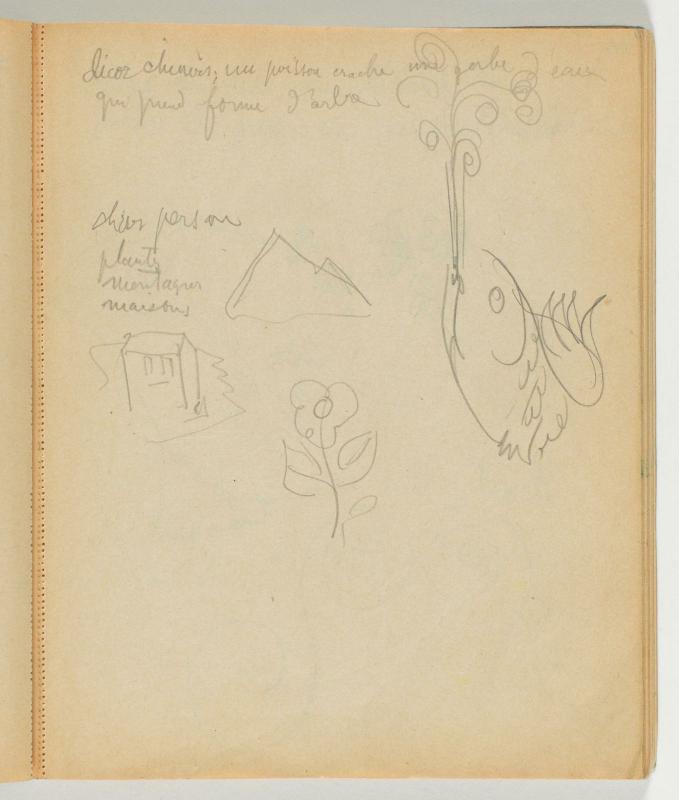 décor chinois, un poisson crache une gerbe d'eau
qui prend forme d'arbre
person
plantes
montagnes
maisons